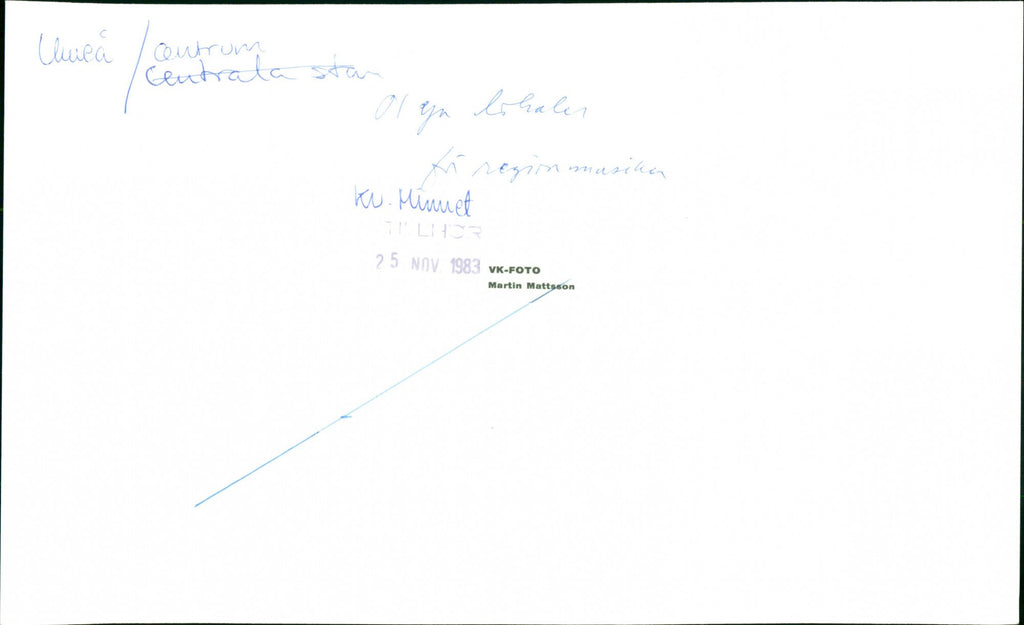 Umeå / centrum
centrala stan
nya lokaler
för regionmusiken
Kv. Minnet
TILLHÖR
25 NOV. 1983
VK-FOTO
Martin Mattsson